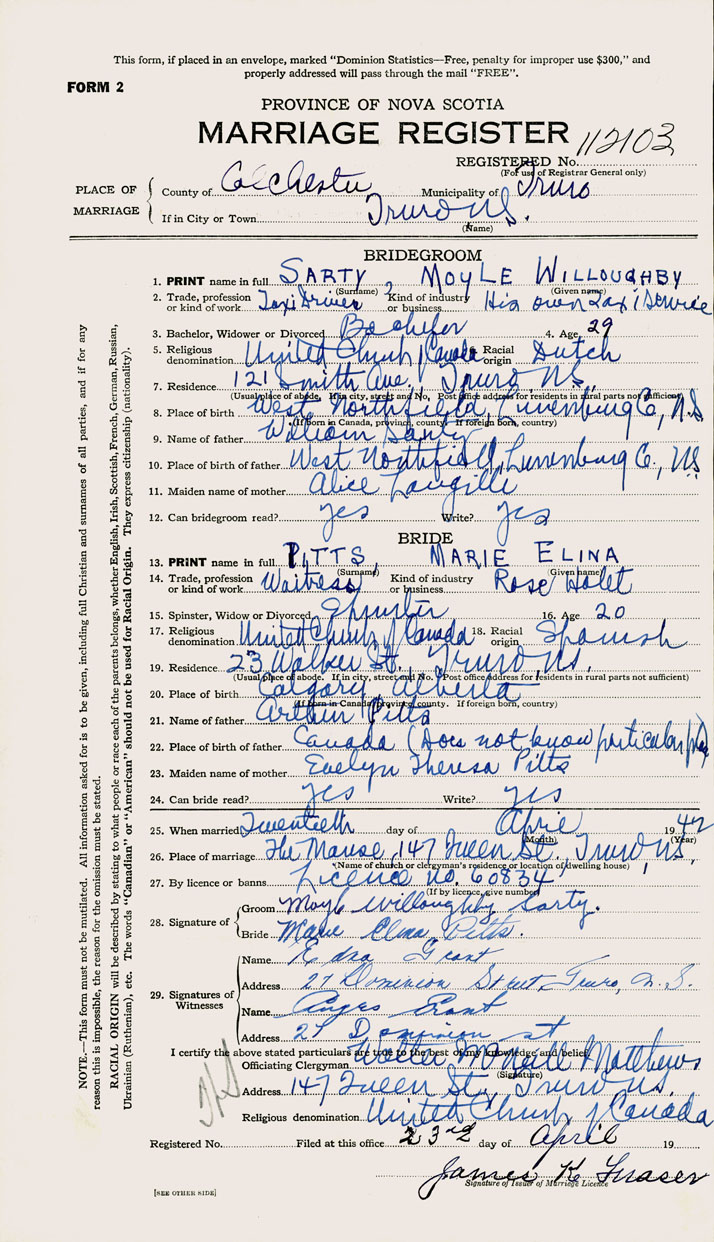 This form, if placed in an envelope, marked "Dominion Statistics—Free, penalty for improper use $300," and
properly addressed will pass through the mail "FREE".
FORM 2
PROVINCE OF NOVA SCOTIA
MARRIAGE REGISTER
112103
REGISTERED No.
(For use of Registrar General only)
PLACE OF MARRIAGE
County of Colchester Municipality of Truro
If in City or Town Truro N.S.
(Name)
BRIDEGROOM
1. PRINT name in full SARTY, MOYLE WILLOUGHBY
(Surname) (Given name)
2. Trade, profession or kind of work Taxi Driver Kind of industry or business His own Taxi Service
3. Bachelor, Widower or Divorced Bachelor 4. Age 29
5. Religious denomination United Church of Canada Racial origin Dutch
7. Residence 121 Smith Ave. Truro N.S.
(Usual place of abode. If in city, street and No. Post office address for residents in rural parts not sufficient)
8. Place of birth West Northfield, Lunenburg Co., N.S
(If born in Canada, province, county. If foreign born, country)
9. Name of father William Sarty
10. Place of birth of father West Northfield, Lunenburg Co., N.S
11. Maiden name of mother Alice Langille
12. Can bridegroom read? yes Write? yes
BRIDE
13. PRINT name in full PITTS, MARIE ELINA
(Surname) (Given name)
14. Trade, profession or kind of work Waitress Kind of industry or business Rose Hotel
15. Spinster, Widow or Divorced Spinster 16. Age 20
17. Religious denomination United Church of Canada 18. Racial origin Spanish
19. Residence 23 Walker St. Truro N.S.
(Usual place of abode. If in city, street and No. Post office address for residents in rural parts not sufficient)
20. Place of birth Calgary, Alberta
(If born in Canada, province, county. If foreign born, country)
21. Name of father Arthur Pitts
22. Place of birth of father Canada (Does not know particular place
23. Maiden name of mother Evelyn Theresa Pitts
24. Can bride read? yes Write? yes
25. When married Twentieth day of April 1942
(Month) (Year)
26. Place of marriage The Manse, 147 Queen St. Truro N.S.
(Name of church or clergyman's residence or location of dwelling house)
27. By licence or banns Licence no. 60834
(If by licence, give number)
28. Signature of
Groom Moyle Willoughby Sarty.
Bride Marie Elina Pitts.
29. Signatures of Witnesses
Name Edna Grant
Address 27 Dominion Street, Truro, N.S.
Name Angus Grant
Address 27 Dominion St
I certify the above stated particulars are true to the best of my knowledge and belief
Officiating Clergyman Walter McNeill Matthews
(Signature)
Address 147 Queen St. Truro N.S.
Religious denomination United Church of Canada
Registered No. Filed at this office 23rd day of April 19
James K Fraser
Signature of Issuer of Marriage Licence
[SEE OTHER SIDE]
NOTE.—This form must not be mutilated. All information asked for is to be given, including full Christian and surnames of all parties, and if for any
reason this is impossible, the reason for the omission must be stated.
RACIAL ORIGIN will be described by stating to what people or race each of the parents belongs, whether English, Irish, Scottish, French, German, Russian,
Ukrainian (Ruthenian), etc. The words "Canadian" or "American" should not be used for Racial Origin. They express citizenship (nationality).